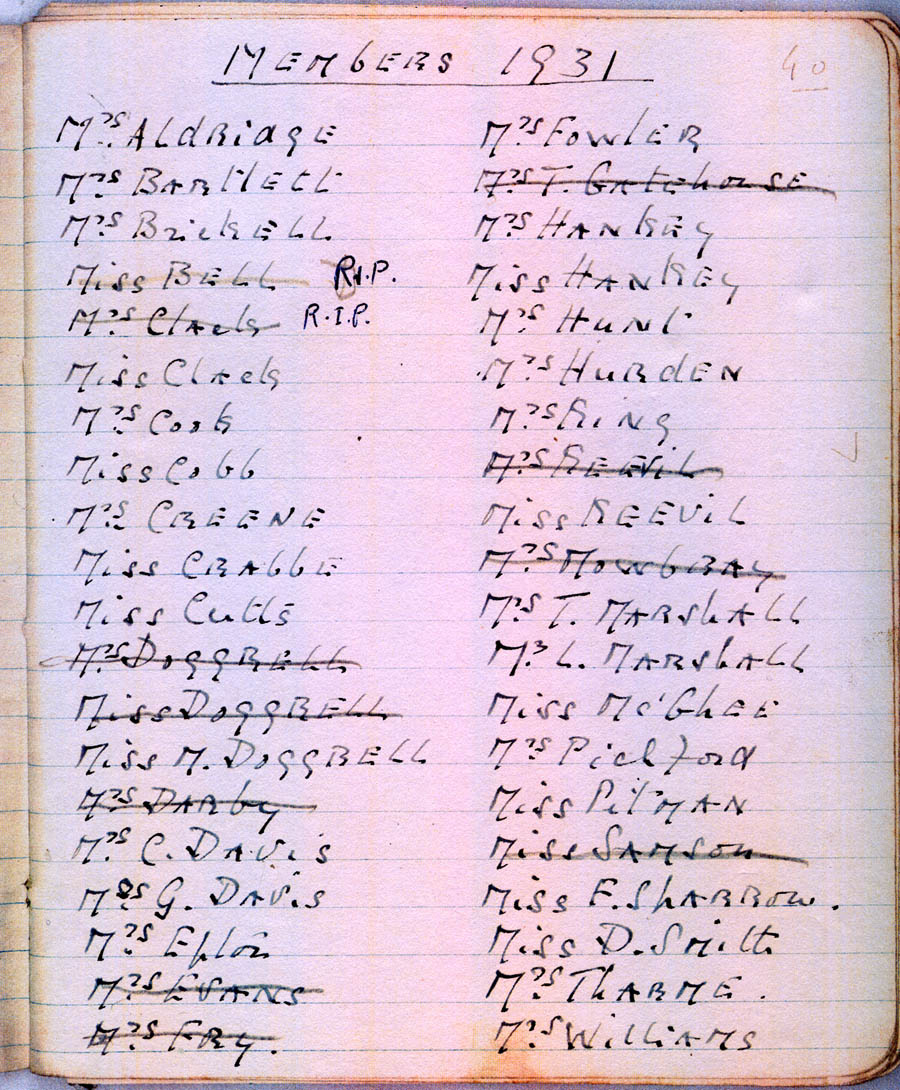 MEMBERS 1931
40
Mrs ALdRidgE
Mrs BARtlEtt
Mrs BRickELL
Miss BELL R.I.P.
Mrs Clack R.I.P.
Miss Clack
Mrs Cook
Miss Cobb
Mrs CREENE
Miss CRAbbE
Miss Cutts
Mrs DoggRELL
Miss DoggRELL
Miss M. DoggRELL
Mrs DARby
Mrs C. DAVis
Mrs G. DAVis
Mrs
Mrs EVANS
Mrs FRy.
Mrs FowLER
Mrs T. GAtehousE
Mrs HANKEy
Miss HANKEy
Mrs HuNt
Mrs HuRdEN
Mrs KiNg
Mrs KEEViL
Miss KEEViL
Mrs MowbRAy
Mrs T. MARShALL
L. MARShALL
Miss Mc'GhEE
Mrs Pickford
Miss PitMAN
Miss SAMSon
Miss E. ShARRow.
Miss D. Smith
Mrs ThARME.
Mrs WilliAMS